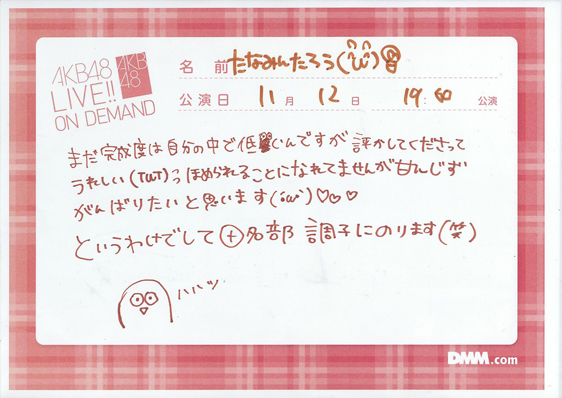 AKB48
LIVE!!
ON DEMAND
AKB
48
名 前 たなみんたろう
公演日 11月 12日 19:00 公演
まだ完成度は自分の中で低いんですが 評かしてくださって
うれしい(TωT)っ ほめられることになれてませんが甘んじず
がんばりたいと思います(´ω`)♡♡♡
というわけでして 名部 調子にのります(笑)
ハハッ
DMM.com